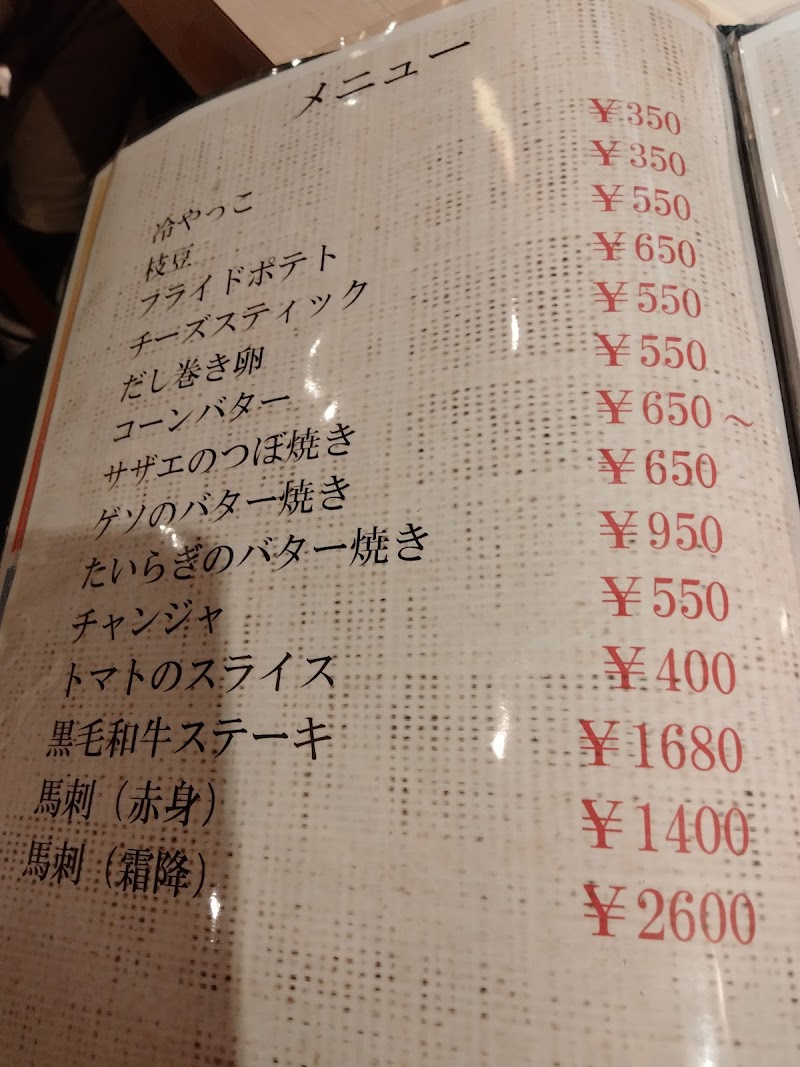 メニュー
冷やっこ ¥350
枝豆 ¥350
フライドポテト ¥550
チーズスティック ¥650
だし巻き卵 ¥550
コーンバター ¥550
サザエのつぼ焼き ¥650~
ゲソのバター焼き ¥650
たいらぎのバター焼き ¥950
チャンジャ ¥550
トマトのスライス ¥400
黒毛和牛ステーキ ¥1680
馬刺(赤身) ¥1400
馬刺(霜降) ¥2600